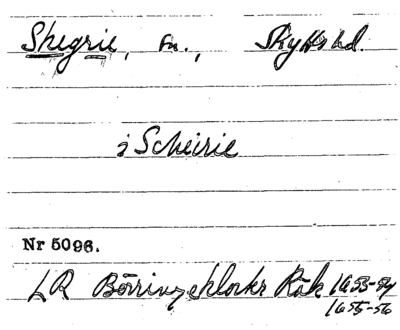 Skegrie, sn., Skytts hd.
i Scheirie
Nr 5096.
LR Börringeklosters Räk 1653-54
1655-56